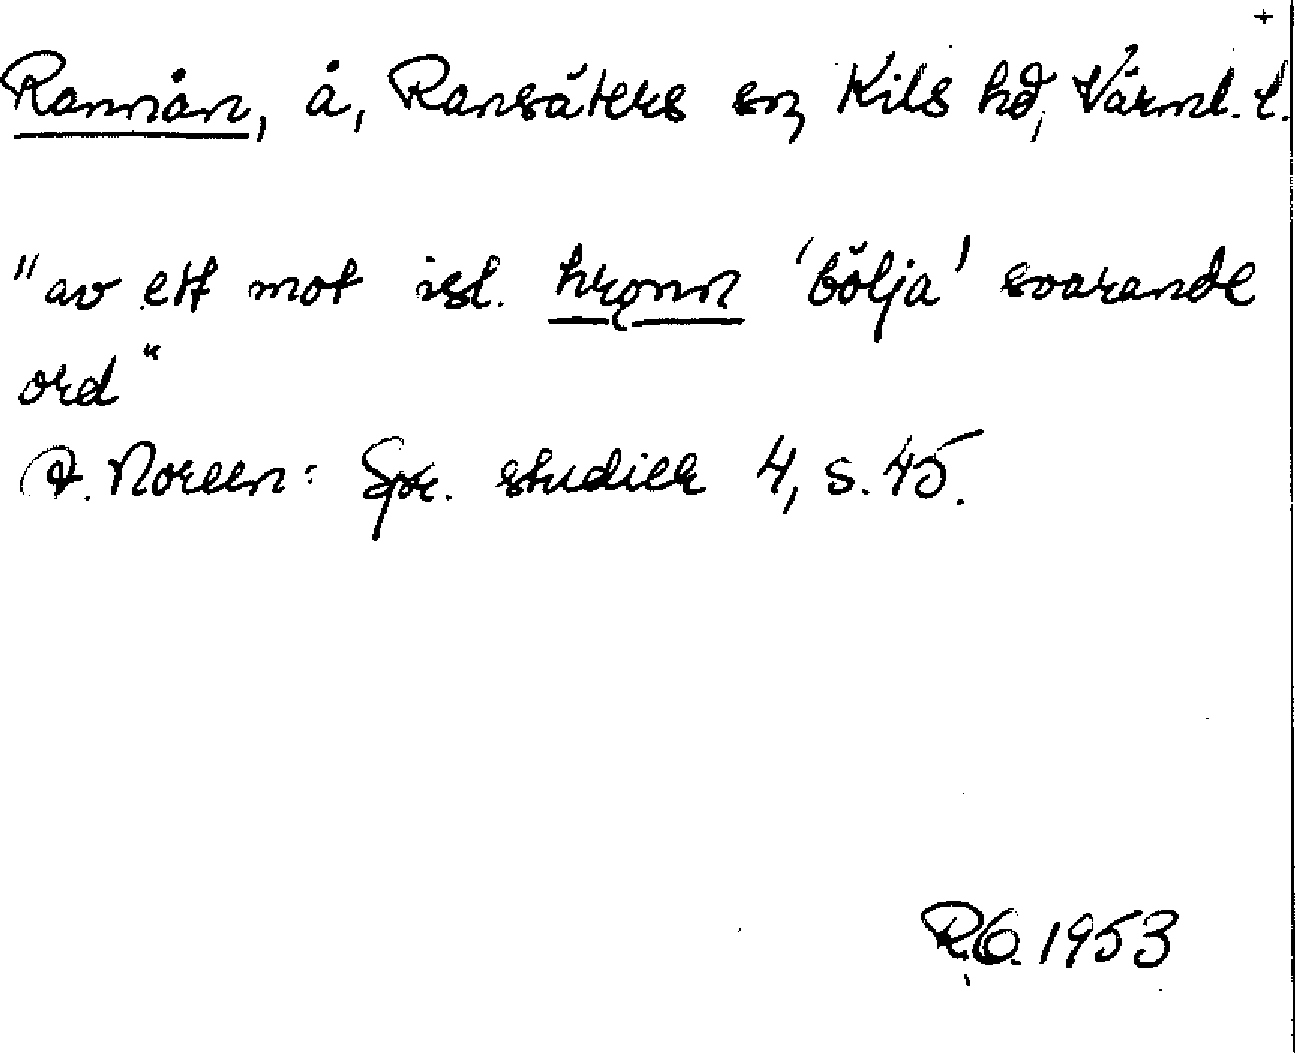 +
Rannån, å, Ransäters sn, Kils hd, Värml. l.
"av ett mot isl. hrǫnn 'bölja' svarande
ord"
A. Noreen: Spr. studier 4, s. 45.
R.O. 1953